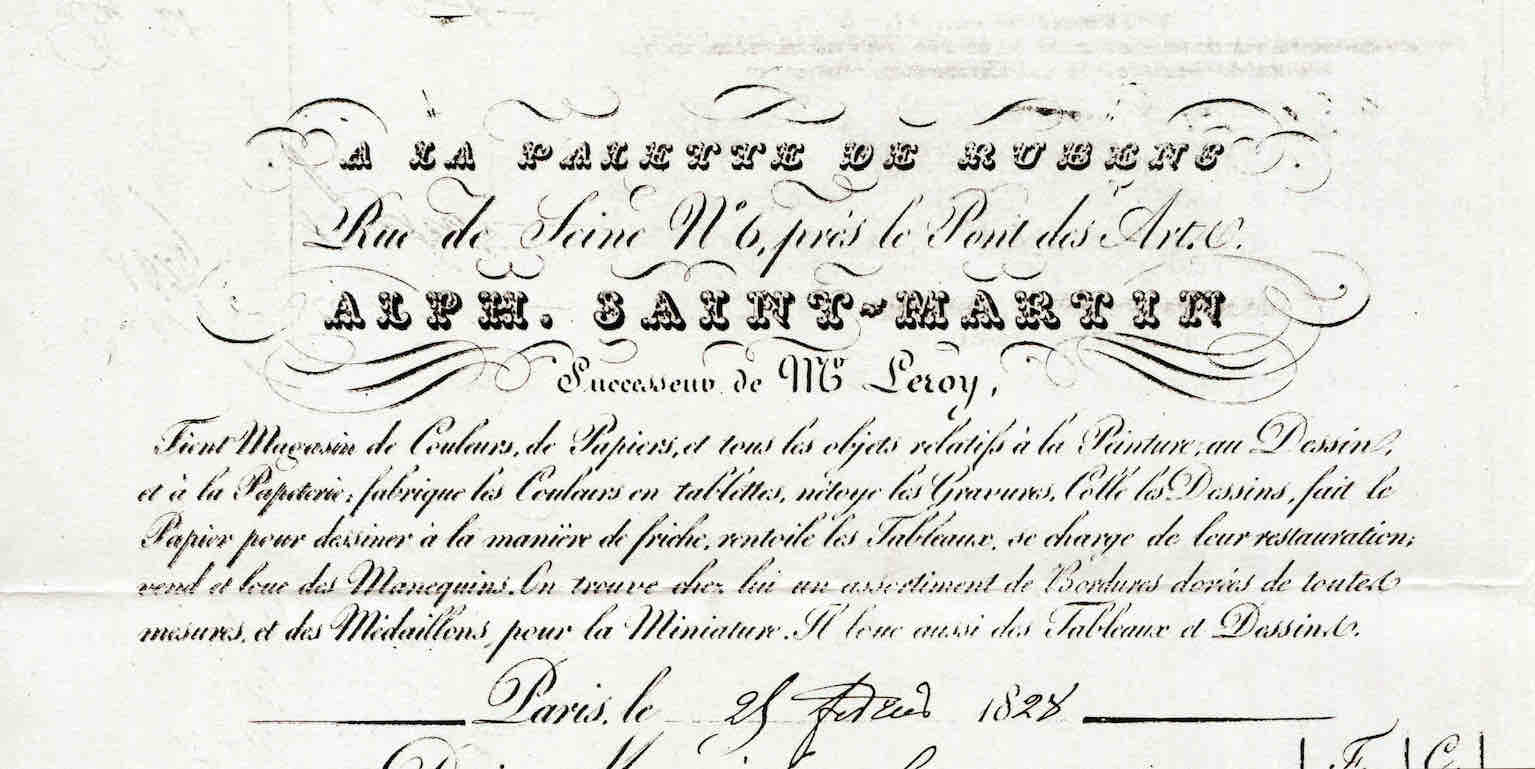 A LA PALETTE DE RUBENS
Rue de Seine N° 6, près le Pont des Arts.
ALPH. SAINT-MARTIN
Successeur de Mr Leroy,
Tient Magasin de Couleurs, de Papiers, et tous les objets relatifs à la Peinture, au Dessin,
et à la Papeterie; fabrique les Couleurs en tablettes, nétoye les Gravures, Colle les Dessins, fait le
Papier pour dessiner à la manière de friche, rentoile les Tableaux, se charge de leur restauration;
vend et loue des Manequins. On trouve chez lui un assortiment de Bordures dorées de toutes
mesures, et des Médaillons, pour la Miniature. Il loue aussi des Tableaux et Dessins.
Paris, le 25 1828
F. C.